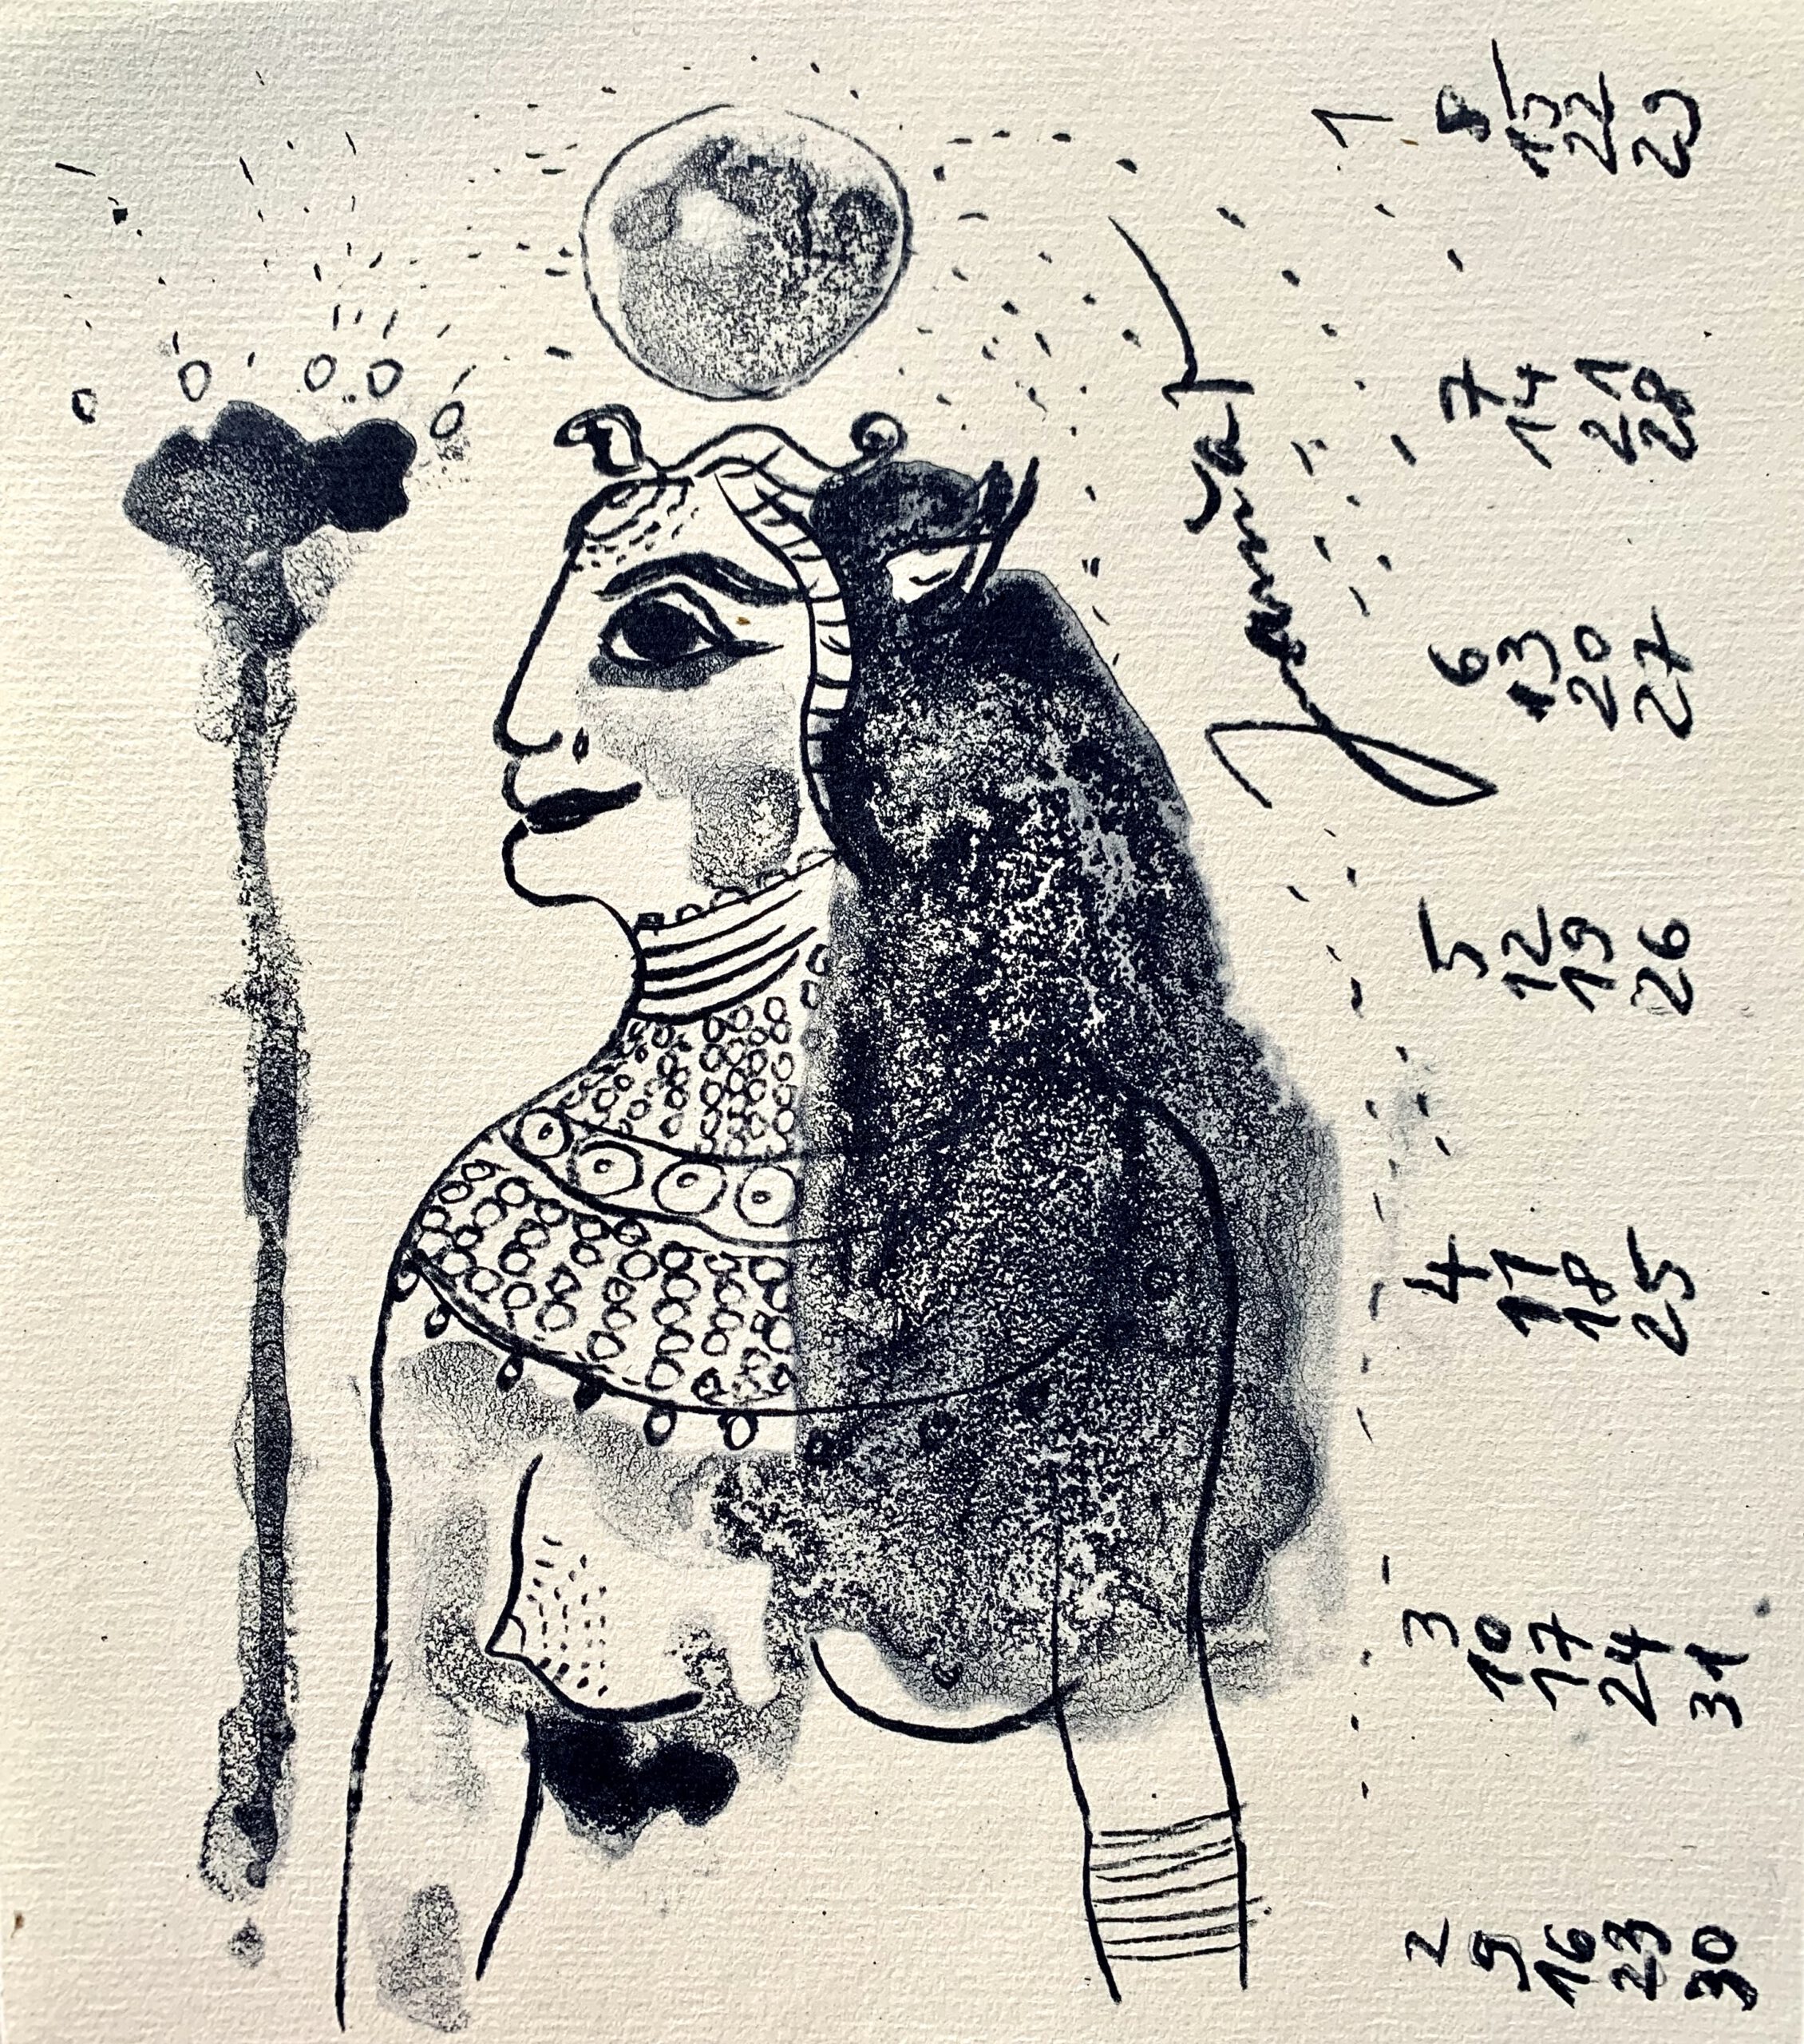 Januar
1
2 3 4 5 6 7 8
9 10 11 12 13 14 15
16 17 18 19 20 21 22
23 24 25 26 27 28 29
30 31